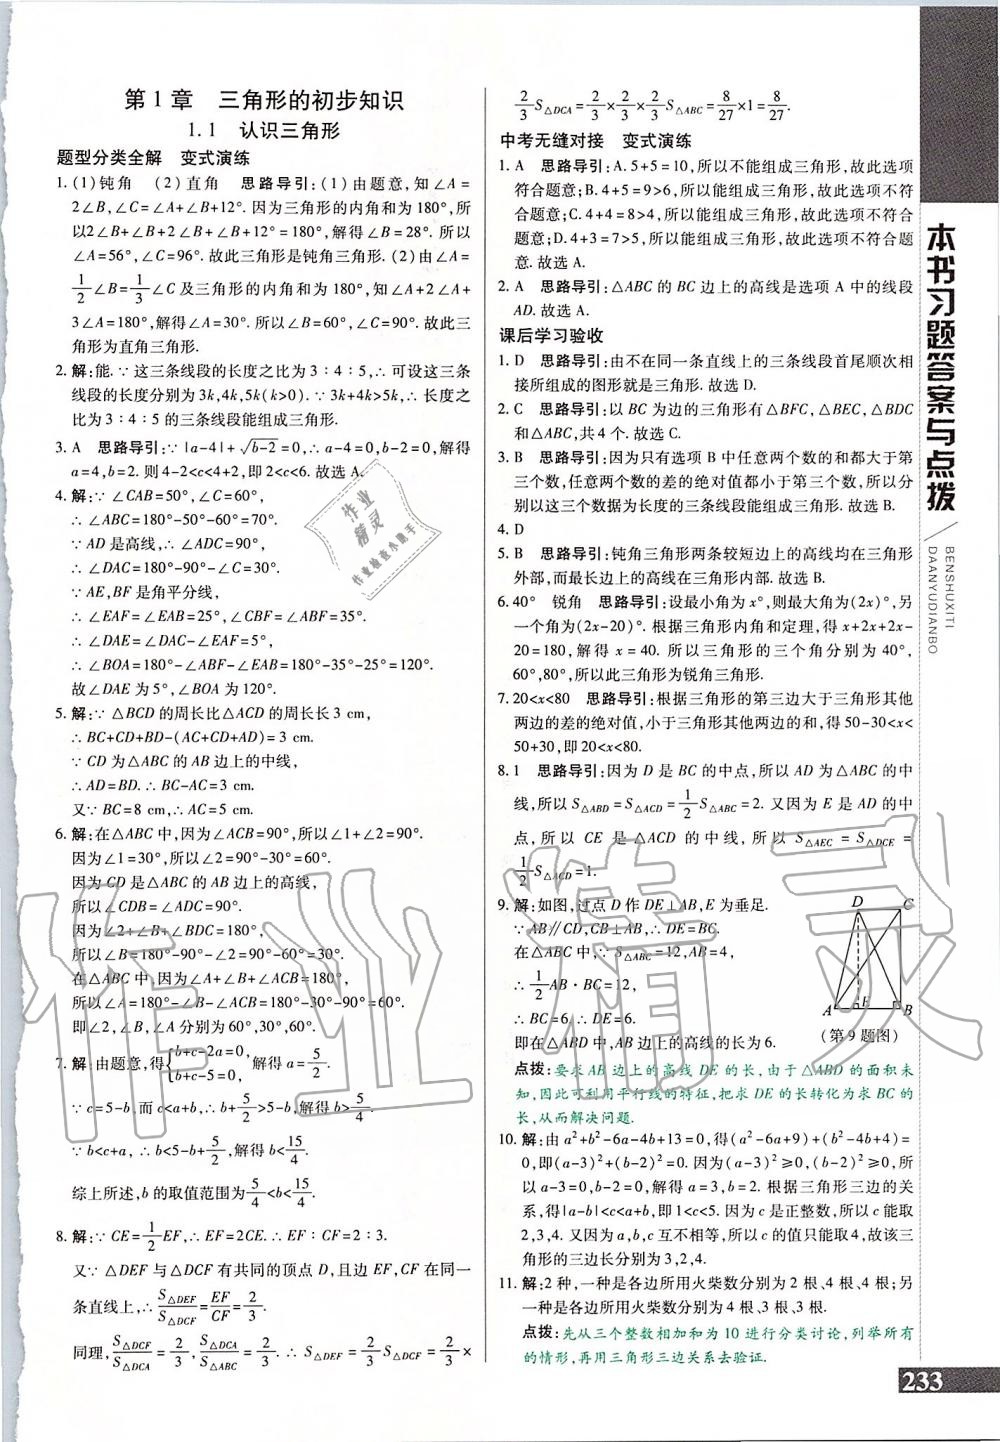 第1章 三角形的初步知识
1.1 认识三角形
题型分类全解 变式演练
1. (1)钝角 (2)直角 思路导引:(1)由题意,知∠A=
2∠B,∠C=∠A+∠B+12°. 因为三角形的内角和为180°,所
以2∠B+∠B+2∠B+∠B+12°=180°,解得∠B=28°. 所以
∠A=56°,∠C=96°. 故此三角形是钝角三角形. (2)由∠A=
1/2∠B=1/3∠C及三角形的内角和为180°,知∠A+2∠A+
3∠A=180°,解得∠A=30°. 所以∠B=60°,∠C=90°. 故此三
角形为直角三角形.
2. 解:能. ∵这三条线段的长度之比为3∶4∶5,∴可设这三条
线段的长度分别为3k,4k,5k(k>0). ∵3k+4k>5k,∴长度之
比为3∶4∶5的三条线段能组成三角形.
3. A 思路导引:∵|a-4|+√(b-2)=0,∴a-4=0,b-2=0,解得
a=4,b=2. 则4-2<c<4+2,即2<c<6. 故选A.
4. 解:∵∠CAB=50°,∠C=60°,
∴∠ABC=180°-50°-60°=70°.
∵AD是高线,∴∠ADC=90°,
∴∠DAC=180°-90°-∠C=30°.
∵AE,BF是角平分线,
∴∠EAF=∠EAB=25°,∠CBF=∠ABF=35°,
∴∠DAE=∠DAC-∠EAF=5°,
∴∠BOA=180°-∠ABF-∠EAB=180°-35°-25°=120°.
故∠DAE为5°,∠BOA为120°.
5. 解:∵△BCD的周长比△ACD的周长长3 cm,
∴BC+CD+BD-(AC+CD+AD)=3 cm.
∵CD为△ABC的AB边上的中线,
∴AD=BD. ∴BC-AC=3 cm.
又∵BC=8 cm,∴AC=5 cm.
6. 解:在△ABC中,因为∠ACB=90°,所以∠1+∠2=90°.
因为∠1=30°,所以∠2=90°-30°=60°.
因为CD是△ABC的AB边上的高线,
所以∠CDB=∠ADC=90°.
因为∠2+∠B+∠BDC=180°,
所以∠B=180°-∠BDC-∠2=90°-60°=30°.
在△ABC中,因为∠A+∠B+∠ACB=180°,
所以∠A=180°-∠B-∠ACB=180°-30°-90°=60°.
即∠2,∠B,∠A分别为60°,30°,60°.
7. 解:由题意,得{b+c-2a=0, b+c-5=0, 解得a=5/2.
∵c=5-b,而c<a+b,∴b+5/2>5-b,解得b>5/4.
∵b<c+a,∴b<5-b+5/2,解得b<15/4.
综上所述,b的取值范围为5/4<b<15/4.
8. 解:∵CE=1/2EF,∴EF=2CE. ∴EF∶CF=2∶3.
又∵△DEF与△DCF有共同的顶点D,且边EF,CF在同一
条直线上,∴S△DEF/S△DCF=EF/CF=2/3.
同理,S△DCF/S△DCA=2/3,S△DCA/S△ABC=2/3. ∴S△DEF=2/3S△DCF=2/3×
2/3S△DCA=2/3×2/3×2/3S△ABC=8/27×1=8/27.
中考无缝对接 变式演练
1. A 思路导引:A. 5+5=10,所以不能组成三角形,故此选项
符合题意;B. 4+5=9>6,所以能组成三角形,故此选项不符
合题意;C. 4+4=8>4,所以能组成三角形,故此选项不符合
题意;D. 4+3=7>5,所以能组成三角形,故此选项不符合题
意. 故选A.
2. A 思路导引:△ABC的BC边上的高线是选项A中的线段
AD. 故选A.
课后学习验收
1. D 思路导引:由不在同一条直线上的三条线段首尾顺次相
接所组成的图形就是三角形. 故选D.
2. C 思路导引:以BC为边的三角形有△BFC,△BEC,△BDC
和△ABC,共4个. 故选C.
3. B 思路导引:因为只有选项B中任意两个数的和都大于第
三个数,任意两个数的差的绝对值都小于第三个数,所以分
别以这三个数据为长度的三条线段能组成三角形. 故选B.
4. D
5. B 思路导引:钝角三角形两条较短边上的高线均在三角形
外部,而最长边上的高线在三角形内部. 故选B.
6. 40° 锐角 思路导引:设最小角为x°,则最大角为(2x)°,另
一个角为(2x-20)°. 根据三角形内角和定理,得x+2x+2x-
20=180,解得x=40. 所以三角形的三个角分别为40°,
60°,80°,所以此三角形为锐角三角形.
7. 20<x<80 思路导引:根据三角形的第三边大于三角形其他
两边的差的绝对值,小于三角形其他两边的和,得50-30<x<
50+30,即20<x<80.
8. 1 思路导引:因为D是BC的中点,所以AD为△ABC的中
线,所以S△ABD=S△ACD=1/2S△ABC=2. 又因为E是AD的中
点,所以CE是△ACD的中线,所以S△AEC=S△DCE=
1/2S△ACD=1.
9. 解:如图,过点D作DE⊥AB,E为垂足.
∵AB∥CD,CB⊥AB,∴DE=BC.
在△ABC中,∵S△ABC=12,AB=4,
∴1/2AB·BC=12,
∴BC=6,∴DE=6.
即在△ABD中,AB边上的高线的长为6.
D C
A E B
(第9题图)
点拨:要求AB边上的高线DE的长,由于△ABD的面积未
知,因此可利用平行线的特征,把求DE的长转化为求BC的
长,从而解决问题.
10. 解:由a²+b²-6a-4b+13=0,得(a²-6a+9)+(b²-4b+4)=
0,即(a-3)²+(b-2)²=0. 因为(a-3)²≥0,(b-2)²≥0,所
以a-3=0,b-2=0,解得a=3,b=2. 根据三角形三边的关
系,得|a-b|<c<a+b,即1<c<5. 因为c是正整数,所以c能取
2,3,4. 又因为a,b,c互不相等,所以c的值只能取4,故该三
角形的三边长分别为3,2,4.
11. 解:2种,一种是各边所用火柴数分别为2根、4根、4根;另
一种是各边所用火柴数分别为4根、3根、3根.
点拨:先从三个整数相加和为10进行分类讨论,列举所有
的情形,再用三角形三边关系去验证.
本书习题答案与点拨
BENSHUXITI
DAANYUDIANBO
233
作业精灵
作业精灵
作业检查小助手